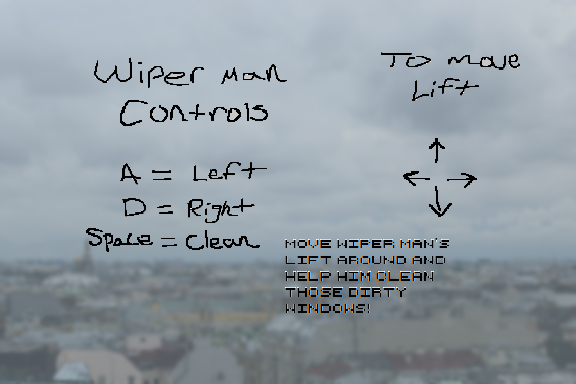 Wiper Man
Controls
A = Left
D = Right
Space = Clean
To move
Lift
MOVE WIPER MAN'S
LIFT AROUND AND
HELP HIM CLEAN
THOSE DIRTY
WINDOWS!